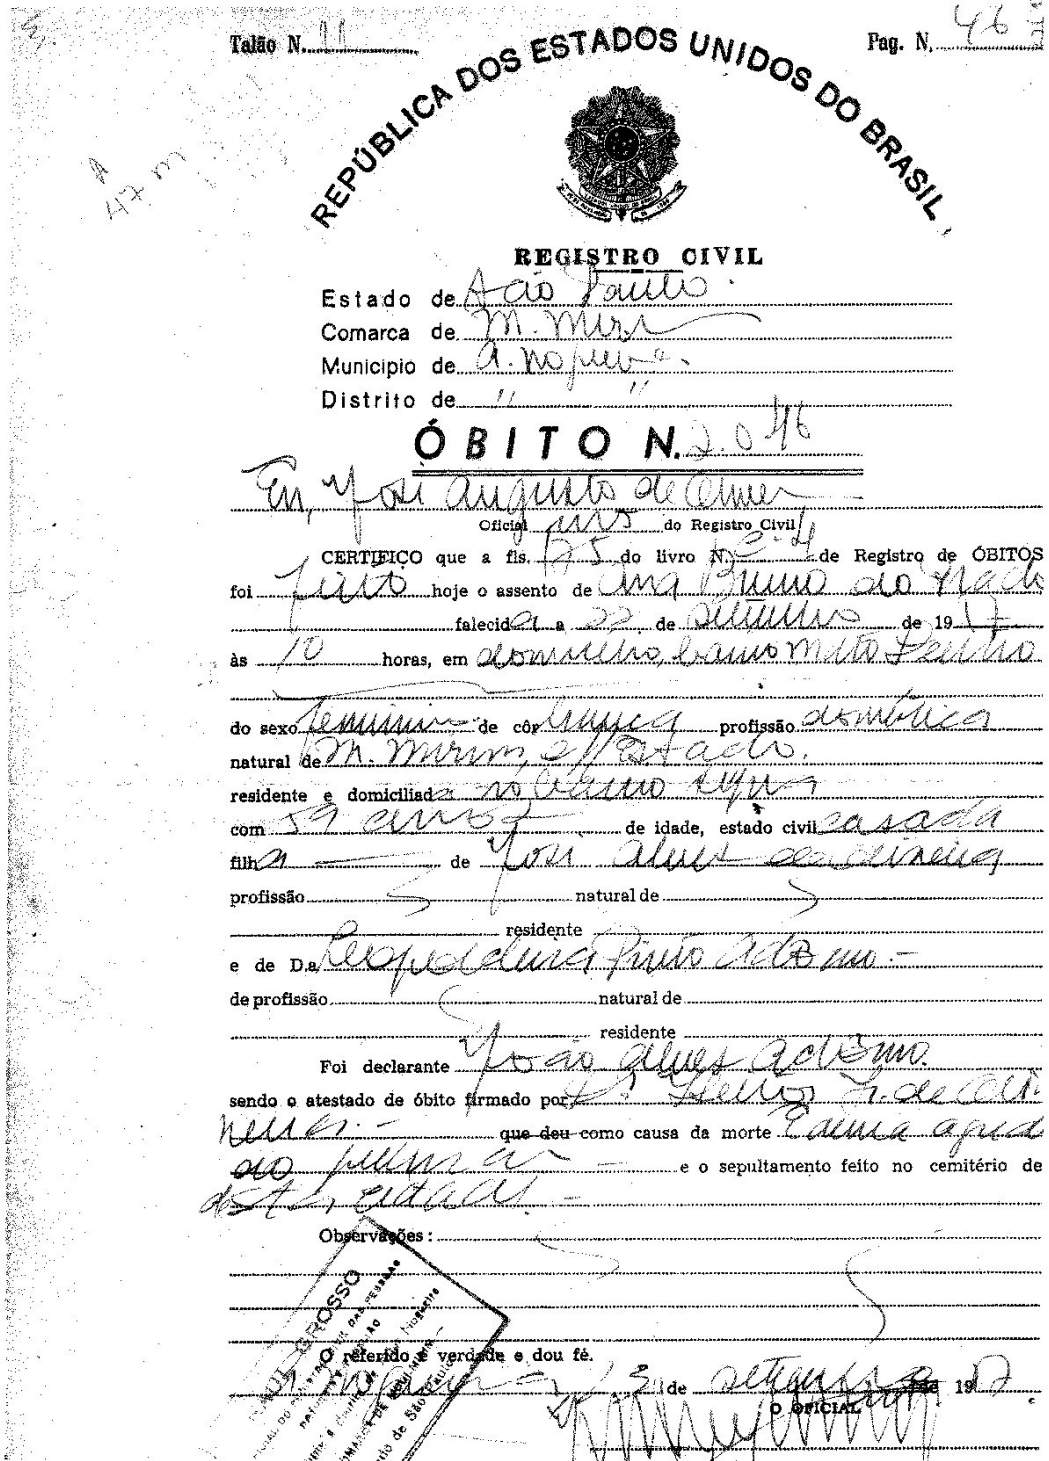 Talão N. 11 Pag. N. 46
REPÚBLICA DOS ESTADOS UNIDOS DO BRASIL
A
47 m
REGISTRO CIVIL
Estado de São Paulo.
Comarca de M. Mirim
Municipio de A. Nogueira.
Distrito de " "
ÓBITO N. 2.046
Eu, José Augusto de
Oficial do Registro Civil
CERTIFICO que a fls. 175 do livro N. C-4 de Registro de ÓBITOS
foi feito hoje o assento de Ana Bueno do Prado
falecida a 22 de setembro de 19
às 10 horas, em domicilio, bairro Mato Dentro
do sexo feminino de côr branca profissão doméstica
natural de M. Mirim, d/Estado.
residente e domiciliada no bairro
com 59 anos de idade, estado civil casada
filha de José Alves de Oliveira
profissão natural de
residente
e de D.a Pinto Adorno.-
de profissão natural de
residente
Foi declarante João Alves Adorno.
sendo o atestado de óbito firmado por Dr.
que deu como causa da morte Edema agudo
do pulmão e o sepultamento feito no cemitério de
desta cidade.-
Observações:
O referido é verdade e dou fé.
A. Nogueira, 23 de setembro de 19
O OFICIAL
RAUL GROSSO